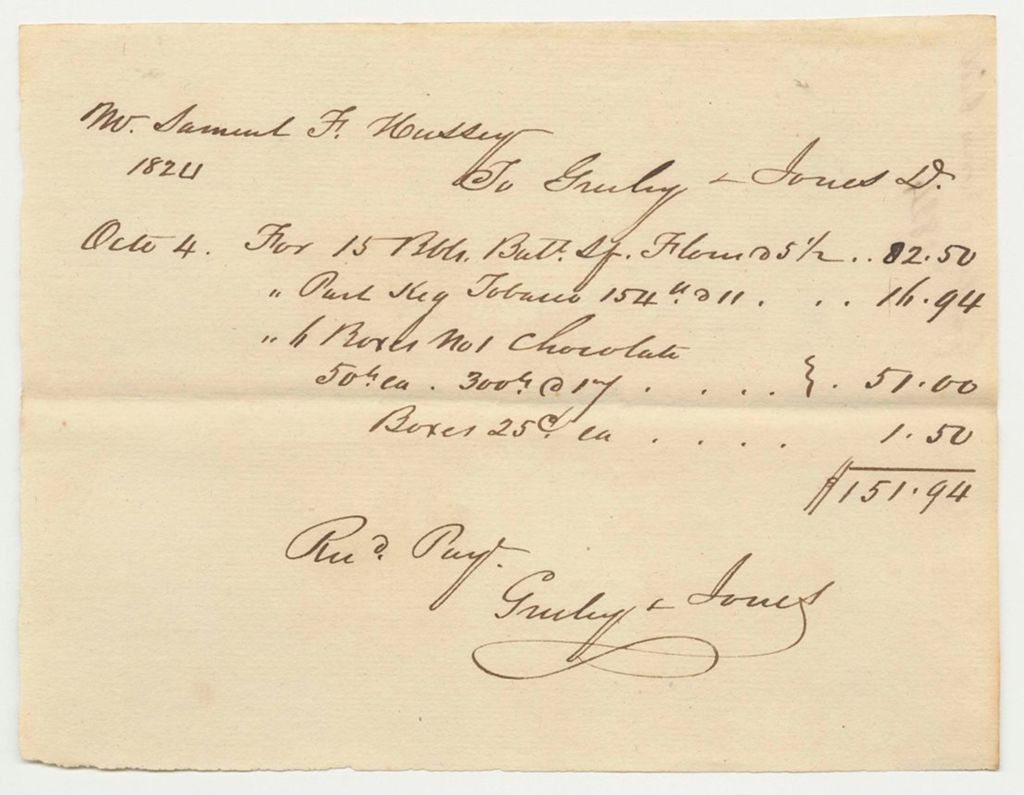 Mr. Samuel F. Hussey
1824 To Greeley & Jones Dr.
Octr 4. For 15 Bbls. Balt. Sf. Flour @ 5 1/2 .. 82.50
" Part Keg Tobacco 154 lb. @ 11 . . . 16.94
" 6 Boxes No 1 Chocolate
50 lb ea . 300 lb @ 17 . . . . } . 51.00
Boxes 25c. ea . . . . 1.50
$151.94
Recd. Payt.
Greeley & Jones